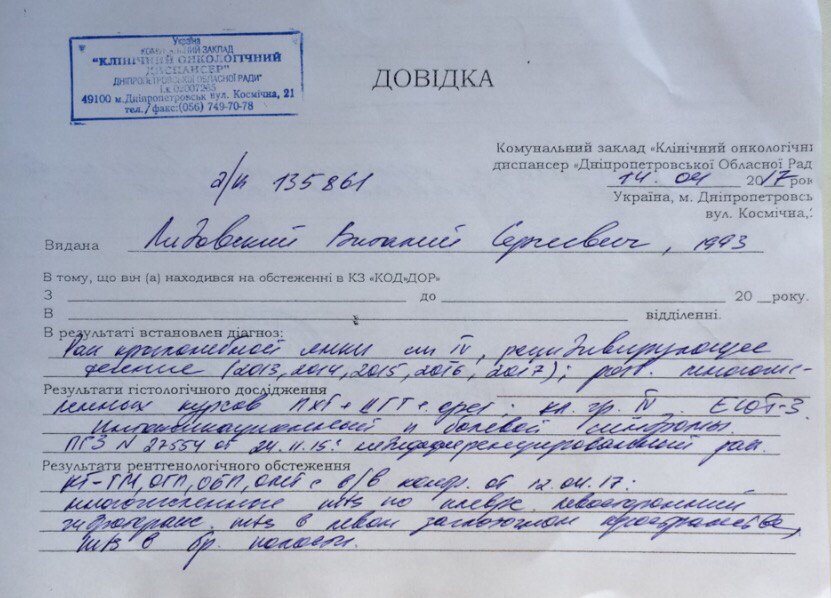 Україна
КОМУНАЛЬНИЙ ЗАКЛАД
"КЛІНІЧНИЙ ОНКОЛОГІЧНИЙ
ДИСПАНСЕР"
ДНІПРОПЕТРОВСЬКОЇ ОБЛАСНОЇ РАДИ"
49100 м.Дніпропетровськ вул. Космічна, 21
тел./факс:(056) 749-70-78
ДОВІДКА
Комунальний заклад «Клінічний онкологічни
диспансер «Дніпропетровської Обласної Рад
а/к 135861
14. 04 2017 рок
Україна, м. Дніпропетровсь
вул. Космічна,
Видана Виталий Сергеевич, 1993
В тому, що він (а) находився на обстеженні в КЗ «КОД»ДОР»
З до 20 року.
В відділенні.
В результаті встановлен діагноз:
Рак крыл. ст IV, рецидивирующее
течение (2013, 2014, 2015, 2016, 2017);
Результати гістологічного дослідження
курсов ПХТ + кл. гр. IV. ECOG-3.
Интоксикационный и болевой синдромы.
ПГЗ N 27554 от 24.11.15: недифференцированный рак.
Результати рентгенологічного обстеження
КТ-ГМ, ОГП, ОБП, ОМТ с в/в контр. от 12.04.17:
множественные mts по плевре. левосторонний
гидроторакс. mts в левом пространстве,
mts в бр. полости.